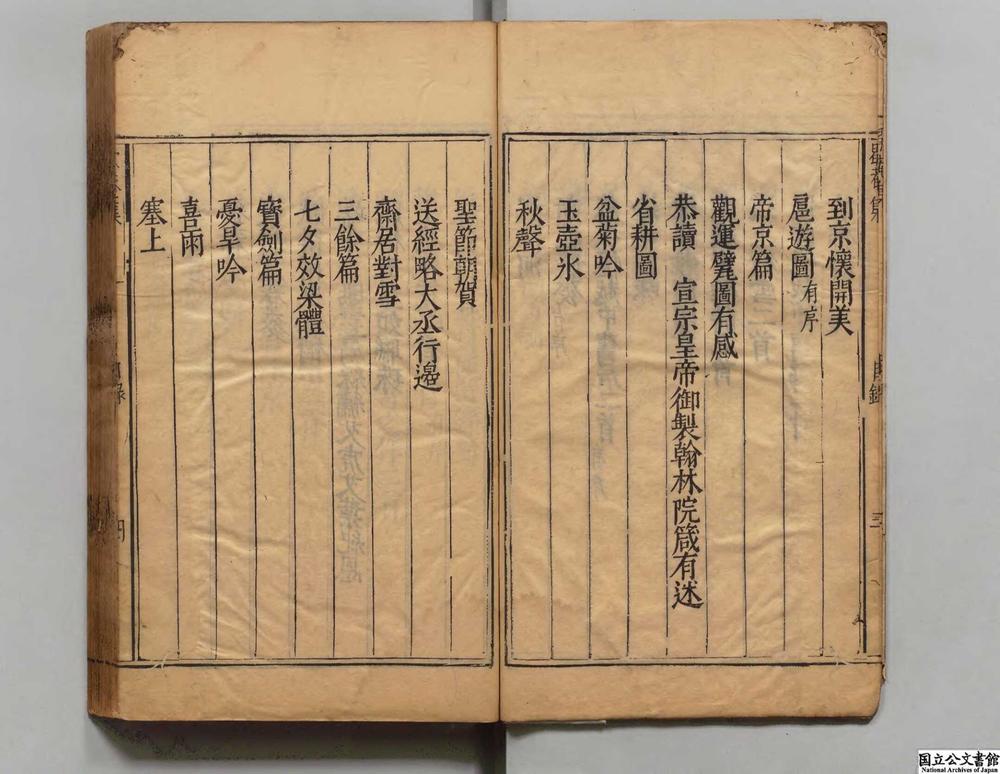 到京懷開美
扈遊圖有序
帝京篇
觀運甓圖有感
恭讀 宣宗皇帝御製翰林院箴有述
省耕圖
盆菊吟
玉壺氷
秋聲
聖節朝賀
送經略大丞行邊
齋居對雪
三餘篇
七夕效梁體
寳劍篇
憂旱吟
喜雨
塞上
国立公文書館
National Archives of Japan